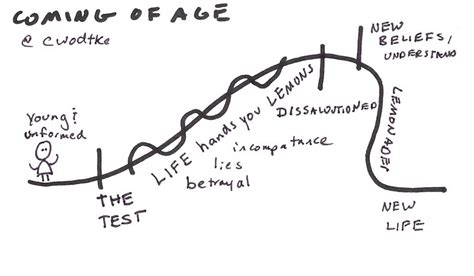 COMING OF AGE
@ cwodtke
Young &
unformed
THE
TEST
LIFE hands you LEMONS
incompatance
lies
betrayal
DISSALUTIONED
NEW
BELIEFS/
UNDERSTAND
LEMONADE!
NEW
LIFE